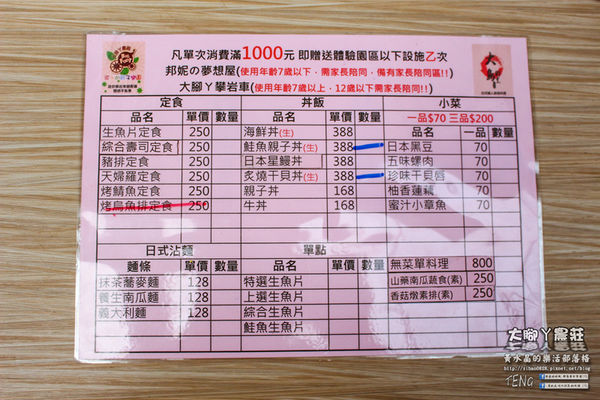 凡單次消費滿1000元 即贈送體驗園區以下設施乙次
邦妮の夢想屋(使用年齡7歲以下．需家長陪同．備有家長陪同區!!)
大腳丫攀岩車(使用年齡7歲以上．12歲以下需家長陪同!!)
定食 丼飯 小菜
品名 單價 數量 品名 單價 數量 一品$70 三品$200
生魚片定食 250 海鮮丼(生) 388 品名 一品 數量
綜合壽司定食 250 鮭魚親子丼(生) 388 日本黑豆 70
豬排定食 250 日本星鰻丼 388 五味螺肉 70
天婦羅定食 250 炙燒干貝丼(生) 388 珍味干貝唇 70
烤鯖魚定食 250 親子丼 168 柚香蓮藕 70
烤烏魚排定食 250 牛丼 168 蜜汁小章魚 70
日式沾麵 單點
麵條 單價 數量 品名 單價 數量 無菜單料理 800
抹茶蕎麥麵 128 特選生魚片 山藥南瓜蔬食(素) 250
養生南瓜麵 128 上選生魚片 香菇燉素排(素) 250
義大利麵 128 綜合生魚片
鮭魚生魚片
大腳丫農莊
黃水晶的樂活部落格
TENG